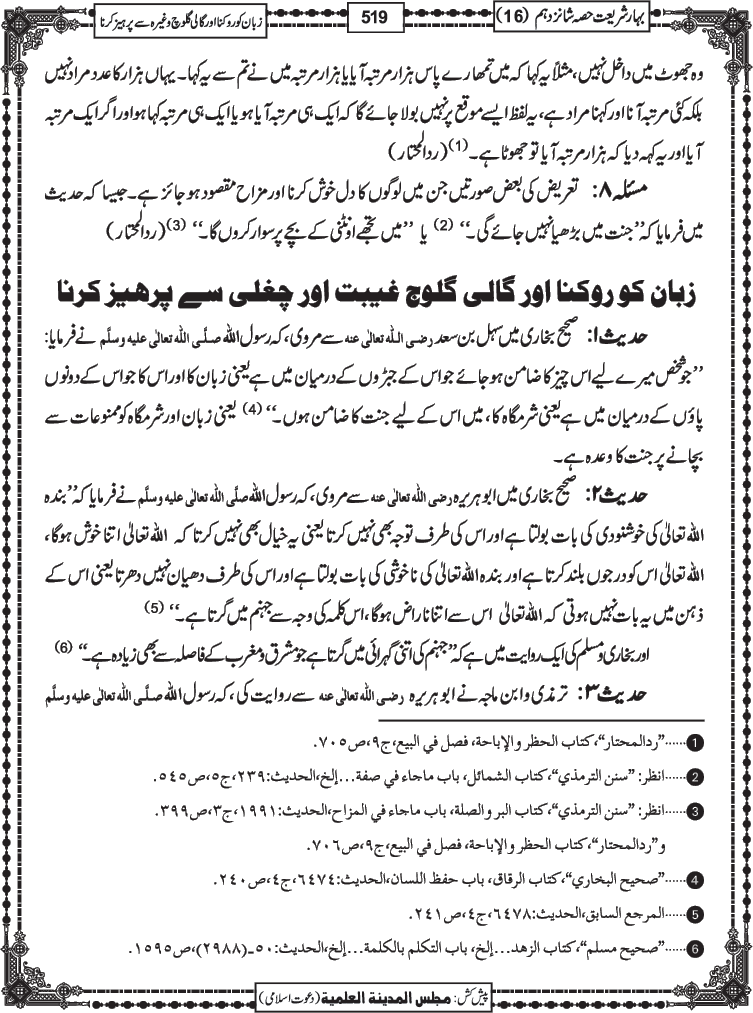 بہارِشریعت حصہ شانزدہم (16)
519
زبان کو روکنا اور گالی گلوچ وغیرہ سے پرہیز کرنا
وہ جھوٹ میں داخل نہیں، مثلاً یہ کہا کہ میں تمھارے پاس ہزار مرتبہ آیا یا ہزار مرتبہ میں نے تم سے یہ کہا۔ یہاں ہزار کا عدد مراد نہیں
بلکہ کئی مرتبہ آنا اور کہنا مراد ہے، یہ لفظ ایسے موقع پر نہیں بولا جائے گا کہ ایک ہی مرتبہ آیا ہو یا ایک ہی مرتبہ کہا ہو اور اگر ایک مرتبہ
آیا اور یہ کہہ دیا کہ ہزار مرتبہ آیا تو جھوٹا ہے۔(1) (ردالمحتار)
مسئلہ ۸: تعریض کی بعض صورتیں جن میں لوگوں کا دل خوش کرنا اور مزاح مقصود ہو جائز ہے۔ جیسا کہ حدیث
میں فرمایا کہ ’’جنت میں بڑھیا نہیں جائے گی۔‘‘ (2) یا ’’میں تجھے اونٹنی کے بچے پر سوار کروں گا۔‘‘ (3) (ردالمحتار)
زبان کو روکنا اور گالی گلوچ غیبت اور چغلی سے پرھیز کرنا
حدیث ۱: صحیح بخاری میں سہل بن سعد رضی اللہ تعالی عنہ سے مروی، کہ رسول اللہ صلَّی اللہ تعالی علیہ وسلَّم نے فرمایا:
’’جو شخص میرے لیے اس چیز کا ضامن ہو جائے جو اس کے جبڑوں کے درمیان میں ہے یعنی زبان کا اور اس کا جو اس کے دونوں
پاؤں کے درمیان میں ہے یعنی شرمگاہ کا، میں اس کے لیے جنت کا ضامن ہوں۔‘‘ (4) یعنی زبان اور شرمگاہ کو ممنوعات سے
بچانے پر جنت کا وعدہ ہے۔
حدیث ۲: صحیح بخاری میں ابوہریرہ رضی اللہ تعالی عنہ سے مروی، کہ رسول اللہ صلَّی اللہ تعالی علیہ وسلَّم نے فرمایا کہ ’’بندہ
اللہ تعالیٰ کی خوشنودی کی بات بولتا ہے اور اس کی طرف توجہ بھی نہیں کرتا یعنی یہ خیال بھی نہیں کرتا کہ اللہ تعالیٰ اتنا خوش ہوگا،
اللہ تعالیٰ اس کو درجوں بلند کرتا ہے اور بندہ اللہ تعالیٰ کی ناخوشی کی بات بولتا ہے اور اس کی طرف دھیان نہیں دھرتا یعنی اس کے
ذہن میں یہ بات نہیں ہوتی کہ اللہ تعالیٰ اس سے اتنا ناراض ہوگا، اس کلمہ کی وجہ سے جہنم میں گرتا ہے۔‘‘ (5)
اور بخاری و مسلم کی ایک روایت میں ہے کہ ’’جہنم کی اتنی گہرائی میں گرتا ہے جو مشرق و مغرب کے فاصلہ سے بھی زیادہ ہے۔‘‘ (6)
حدیث ۳: ترمذی و ابن ماجہ نے ابوہریرہ رضی اللہ تعالی عنہ سے روایت کی، کہ رسول اللہ صلَّی اللہ تعالی علیہ وسلَّم
1......’’ردالمحتار‘‘، کتاب الحظر والإباحة، فصل في البیع، ج۹، ص۷۰۵.
2......انظر: ’’سنن الترمذي‘‘، کتاب الشمائل، باب ماجاء في صفة...إلخ، الحدیث:۲۳۹، ج۵، ص۵۴۵.
3......انظر: ’’سنن الترمذي‘‘، کتاب البر والصلة، باب ماجاء في المزاح، الحدیث:۱۹۹۱، ج۳، ص۳۹۹.
و’’ردالمحتار‘‘، کتاب الحظر والإباحة، فصل في البیع، ج۹، ص۷۰۶.
4......’’صحیح البخاري‘‘، کتاب الرقاق، باب حفظ اللسان، الحدیث:۶۴۷۴، ج۴، ص۲۴۰.
5......المرجع السابق، الحدیث:۶۴۷۸، ج۴، ص۲۴۱.
6......’’صحیح مسلم‘‘، کتاب الزهد...إلخ، باب التکلم بالکلمة...إلخ، الحدیث:۵۰_(۲۹۸۸)، ص۱۵۹۵.
پیش کش: مجلس المدینة العلمیة (دعوت اسلامی)